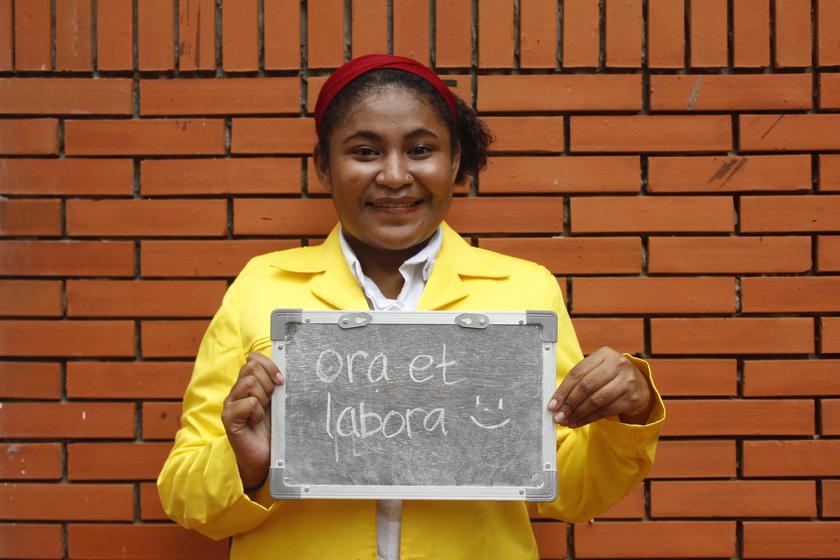 Ora et
labora